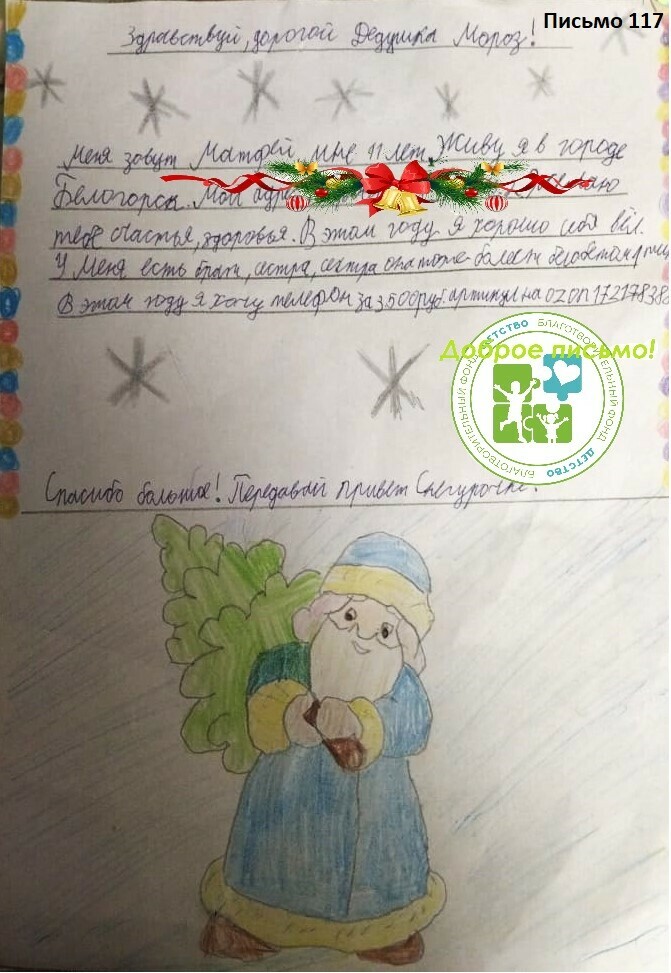 Письмо 117
Здравствуй, дорогой Дедушка Мороз!
Меня зовут Матфей, мне 11 лет. Живу я в городе
Белогорск. Мой адр желаю
тебе счастья, здоровья. В этом году я хорошо себя вёл.
У меня есть браты, сестра, сестра она тоже болеет
В этом году я хочу телефон за 3500руб. артикул на ozon 17217838
Доброе письмо!
БЛАГОТВОРИТЕЛЬНЫЙ ФОНД ДЕТСТВО БЛАГОТВОРИТЕЛЬНЫЙ ФОНД ДЕТСТВО
Спасибо большое! Передавай привет Снегурочке!